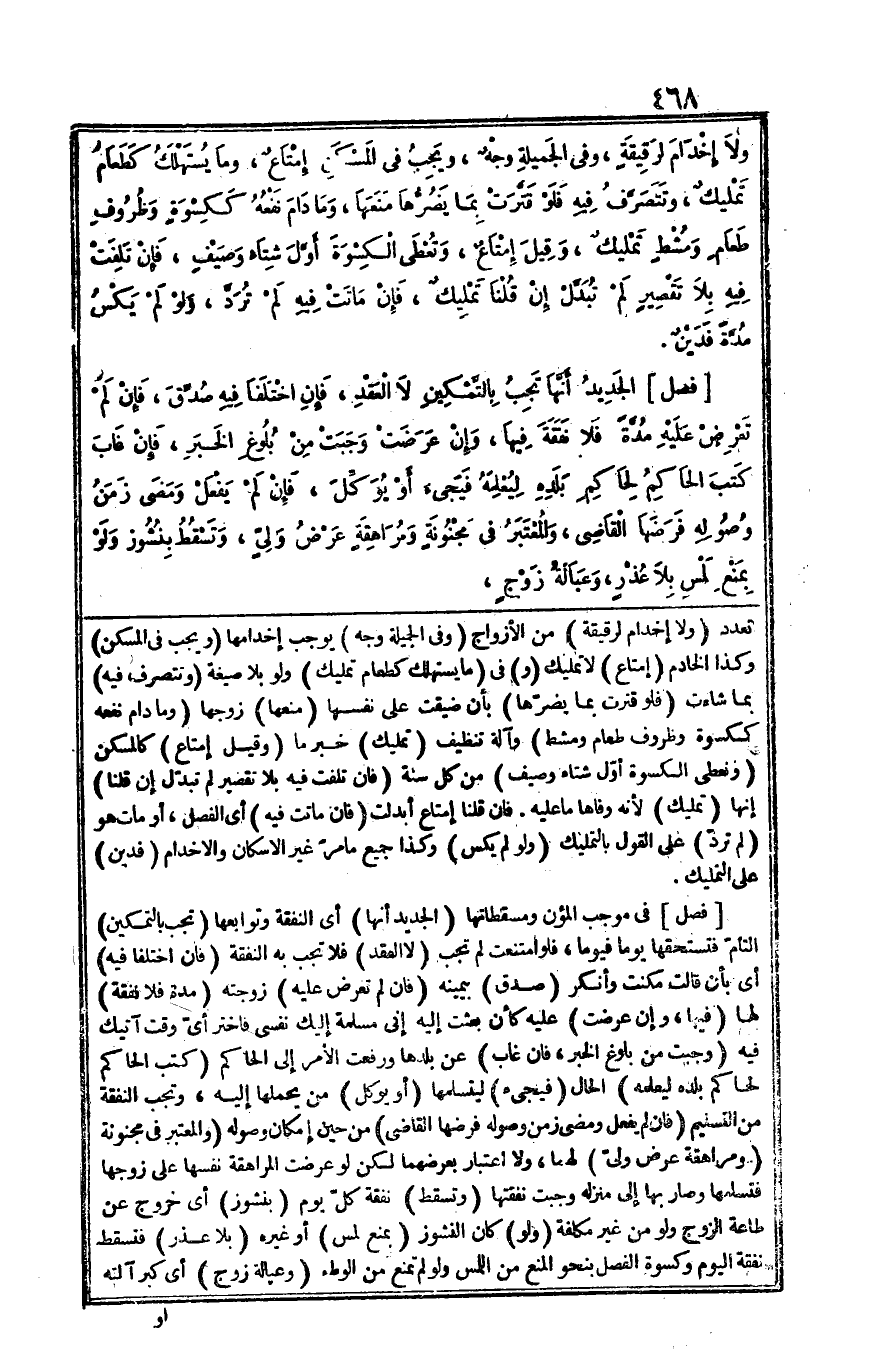 ٤٦٨
ولَا إِخْدَامَ لرَقِيقَةٍ ، وفى الجَمِيلةِ وجْهٌ ، ويَجِبُ فى المَسْكَنِ إِمْتَاعٌ ، وما يُسْتَهْلَكُ كَطَعَامٍ
تَمْلِيكٌ ، وتَتَصَرَّفُ فِيهِ فَلَوْ قَتَّرَتْ بِمَا يَضُرُّهَا مَنَعَهَا ، وَمَا دَامَ نَفْعُهُ كَكِسْوَةٍ وَظُرُوفِ
طَعَامٍ وَمُشْطٍ تَمْلِيكٌ ، وَقِيلَ إِمْتَاعٌ ، وَتُعْطَى الْكِسْوَةَ أَوَّلَ شِتَاءٍ وَصَيْفٍ ، فَإِنْ تَلِفَتْ
فِيهِ بِلَا تَقْصِيرٍ لَمْ تُبَدَّلْ إِنْ قُلْنَا تَمْلِيكٌ ، فَإِنْ مَاتَتْ فِيهِ لَمْ تُرَدَّ ، وَلَوْ لَمْ يَكْسُ
مُدَّةً فَدَيْنٌ .
[ فصل ] الجَدِيدُ أَنَّهَا تَجِبُ بِالتَّمْكِينِ لَا الْعَقْدِ ، فَإِنِ اخْتَلَفَا فِيهِ صُدِّقَ ، فَإِنْ لَمْ
تَعْرِضْ عَلَيْهِ مُدَّةً فَلَا نَفَقَةَ فِيهَا ، وَإِنْ عَرَضَتْ وَجَبَتْ مِنْ بُلُوغِ الخَبَرِ ، فَإِنْ غَابَ
كَتَبَ الحَاكِمُ لِحَاكِمِ بَلَدِهِ لِيُعْلِمَهُ فَيَجِىءَ أَوْ يُوَكِّلَ ، فَإِنْ لَمْ يَفْعَلْ وَمَضَى زَمَنُ
وُصُولِهِ فَرَضَهَا الْقَاضِى ، وَالمُعْتَبَرُ فى مَجْنُونَةٍ وَمُرَاهِقَةٍ عَرْضُ وَلِىٍّ ، وَتَسْقُطُ بِنُشُوزٍ وَلَوْ
بِمَنْعِ لَمْسٍ بِلَا عُذْرٍ ، وَعَبَالَةُ زَوْجٍ ،
تعدد ( ولا إخدام لرقيقة ) من الأزواج ( وفى الجميلة وجه ) يوجب إخدامها ( ويجب فى المسكن )
وكذا الخادم ( إمتاع ) لا تمليك ( و ) فى ( ما يستهلك كطعام تمليك ) ولو بلا صيغة ( وتتصرف فيه )
بما شاءت ( فلو قترت بما يضرّها ) بأن ضيقت على نفسها ( منعها ) زوجها ( وما دام نفعه
ككسوة وظروف طعام ومشط ) وآلة تنظيف ( تمليك ) خبر ما ( وقيل إمتاع ) كالمسكن
( وتعطى الكسوة أوّل شتاء وصيف ) من كل سنة ( فان تلفت فيه بلا تقصير لم تبدّل إن قلنا )
إنها ( تمليك ) لأنه وفاها ما عليه . فان قلنا إمتاع أبدلت ( فان ماتت فيه ) أى الفصل ، أو مات هو
( لم تردّ ) على القول بالتمليك ( ولو لم يكس ) وكذا جميع ما مرّ غير الاسكان والاخدام ( فدين )
على التمليك .
[ فصل ] فى موجب المؤن ومسقطاتها ( الجديد أنها ) أى النفقة وتوابعها ( تجب بالتمكين )
التامّ فتستحقها يوما فيوما ، فلو امتنعت لم تجب ( لا العقد ) فلا تجب به النفقة ( فان اختلفا فيه )
أى بأن قالت مكنت وأنكر ( صدق ) بيمينه ( فان لم تعرض عليه ) زوجته ( مدة فلا نفقة )
لها ( فيها ، وإن عرضت ) عليه كأن بعثت إليه إنى مسلمة إليك نفسى فاختر أىّ وقت آتيك
فيه ( وجبت من بلوغ الخبر ، فان غاب ) عن بلدها ورفعت الأمر إلى الحاكم ( كتب الحاكم
لحاكم بلده ليعلمه ) الحال ( فيجىء ) ليتسلمها ( أو يوكل ) من يحملها إليه ، وتجب النفقة
من التسليم ( فان لم يفعل ومضى زمن وصوله فرضها القاضى ) من حين إمكان وصوله ( والمعتبر فى مجنونة
ومراهقة عرض ولىّ ) لهما ، ولا اعتبار بعرضهما لكن لو عرضت المراهقة نفسها على زوجها
فتسلمها وصار بها إلى منزله وجبت نفقتها ( وتسقط ) نفقة كلّ يوم ( بنشوز ) أى خروج عن
طاعة الزوج ولو من غير مكلفة ( ولو ) كان النشوز ( بمنع لمس ) أو غيره ( بلا عذر ) فتسقط
نفقة اليوم وكسوة الفصل بنحو المنع من اللمس ولو لم تمنع من الوطء ( وعبالة زوج ) أى كبر آلته
او